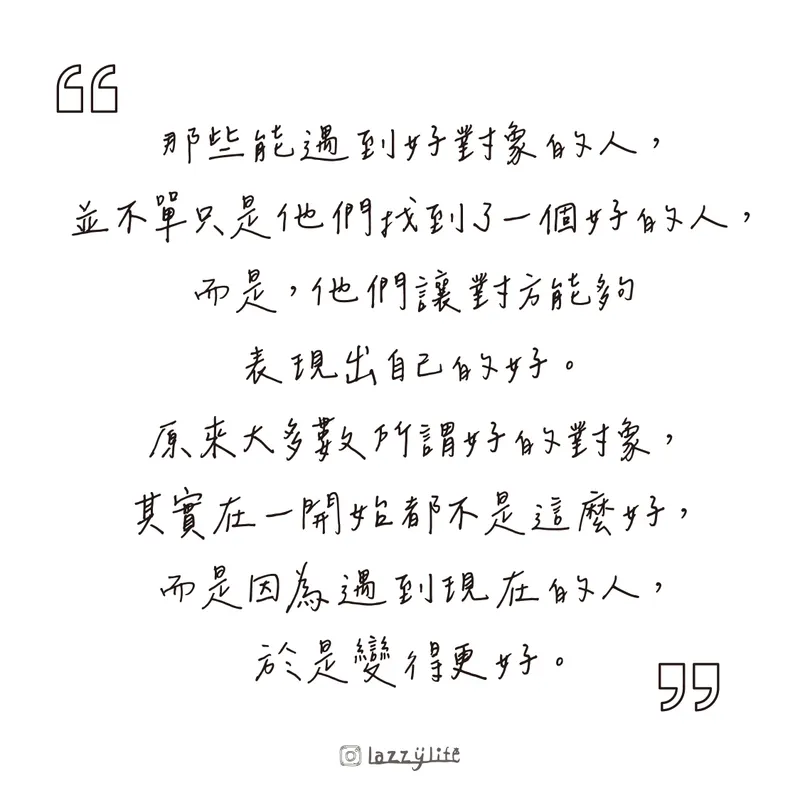 那些能遇到好對象的人，
並不單只是他們找到了一個好的人，
而是，他們讓對方能夠
表現出自己的好。
原來大多數所謂好的對象，
其實在一開始都不是這麼好，
而是因為遇到現在的人，
於是變得更好。
lazzylife